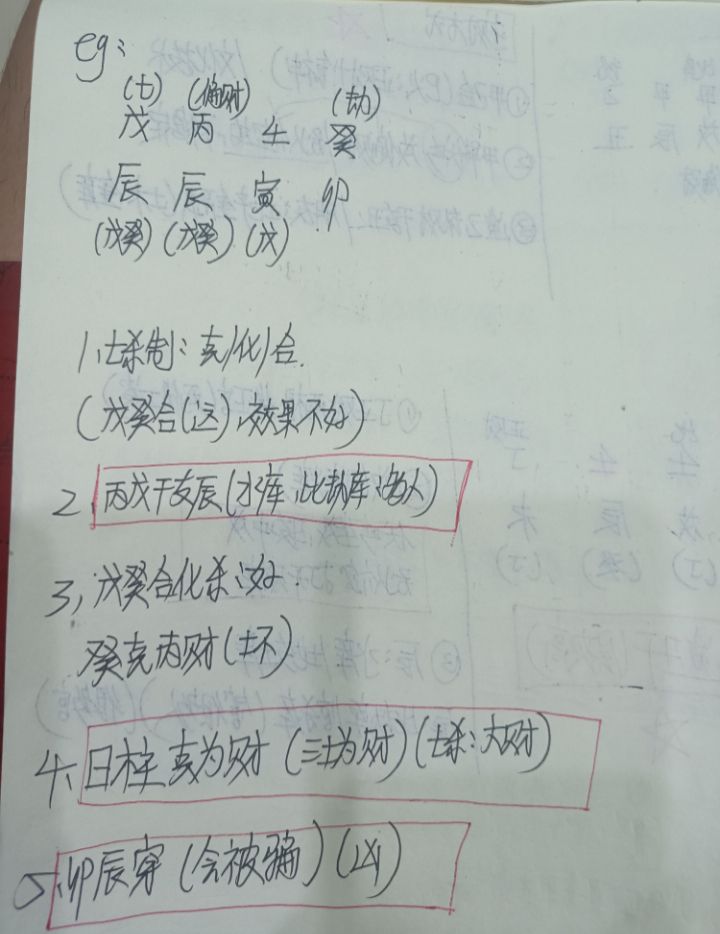 eg:
(七) (偏财) (劫)
戊 丙 壬 癸
辰 辰 寅 卯
(戊癸) (戊癸) (戊)
1、七杀制：克/化/合.
(戊癸合(这)，效果不好)
2、丙戊干支辰(水库，比劫库：诸人)
3、戊癸合化杀：好
癸克丙财(坏)
4、日柱克为财(三土为财)(七杀：大财)
5、卯辰穿(会被骗)(凶)